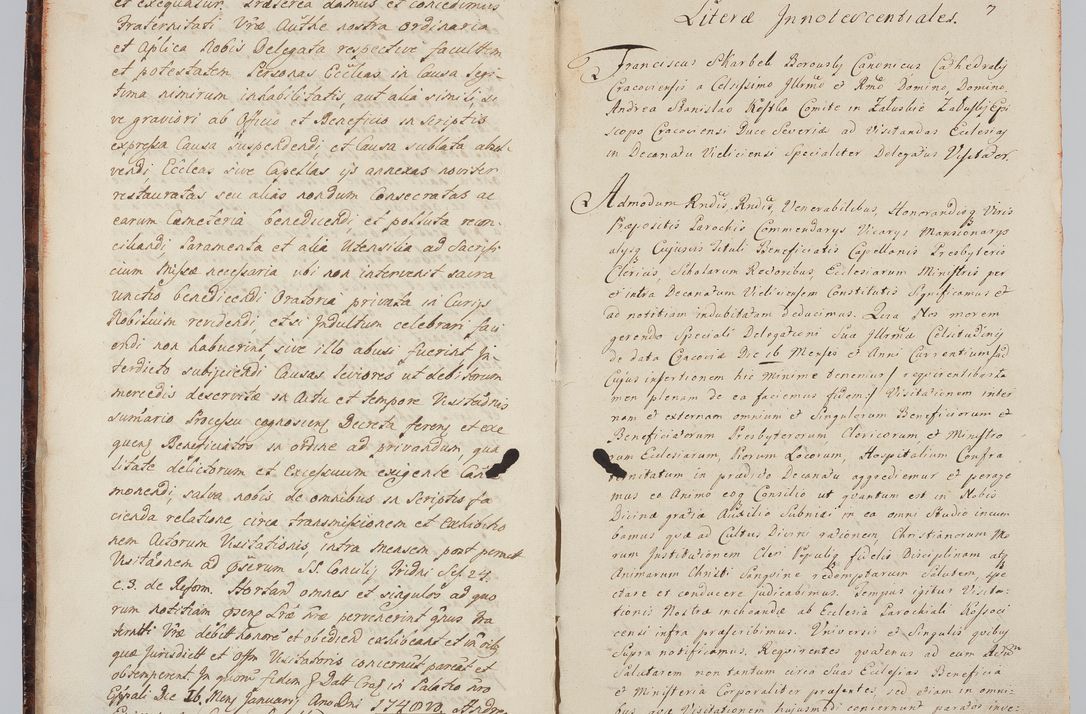 et exequatur. Præterea damus et concedimus
Fraternitati Vræ Authe nostra ordinaria
et Aplica Nobis Delegata respective facultem
et potestatem Personas Eccleas in Causa legi
tima nimirum inhabilitatis, aut alia simili si
ve graviori ab Officio et Beneficio in scriptis
expressa Causa suspendendi, et Causa sublata absol
vendi, Eccleas sive Capellas ijs annexas noviter
restauratas seu alias nondum Consecratas ac
earum Cæmeteria benedicendi, et polluta recon
ciliandi, Paramenta et alia Utensilia ad Sacrifi
cium Missæ necessaria ubi non intervenit sacra
unctio benedicendi Oratoria privata in Curijs
Nobilium revidendi, et si Indultum celebrari faci
endi non habuerint, sive illo abusi fuerint, In
terdicto subijciendi Causas leviores ut debitorum
mercedis deservitæ in Actu et tempore Visitaonis
sumario Processu cognoscens Decreta ferens et exe
quens Beneficiatos in ordine ad privandum, qua
litate delictorum et Excessuum exigente Cano
monendi, salva nobis de omnibus in scriptis fa
cienda relatione, circa transmissionem et Exhibitio
nem Actorum Visitationis, intra mensem post
Visitaonem ad præscrum SS. Concilij Tridni Ses. 24.
c. 3. de Reform. Hortand omnes et singulos ad quo
rum notitiam præns Lræ Nræ pervenerint qnus Fra
ternitti Vræ debitt honore et obedien exhibeant et in oibs
quæ Jurisdictt et Offm Visitatoris concernut pareat et
obtemperent. In quoru fidem Datt Crac in Palatio nro
Eppali Die 16. Mens January, Ano Dni 1740mo. Andreas
Literæ Innotescentiales. 7
Franciscus Skarbek Borowsky Canonicus Cathedralis
Cracoviensis a Celsissimo Illrmo et Rmo Domino, Domino
Andrea Stanislao Kostka Comite in Załuskie Załuskj Epi
scopo Cracoviensi Duce Severiæ ad Visitandas Ecclesias
in Decanatu Vieliciensi Specialiter Delegatus Visitator.
Admodum Rndis, Rndis, Venerabilibus, Honorandisq Viris
Præpositis Parochis Commendarys Vicarys Mansionarys
alysq Cujusvis Tituli Beneficiatis Capellanis Presbyteris
Clericis, Scholarum Rectoribus, Ecclesiarum Ministris per
et intra Decanatum Vieliciensem Constitutis Significamus et
ad notitiam indubitatam deducimus. Quia Nos morem
gerendo Speciali Delegationi Suæ Illrmæ Celsitudinis
de data Cracoviæ Die 16 Mensis et Anni Currentium/ad
Cujus insertionem hic minime tenemur/ requirentibus ta
men plenam de ea faciemus fidem:/ Visitationem inter
nam et externam omnium et Singulorum Beneficiorum et
Beneficiatorum Presbyterorum Clericorum et Ministro
rum Ecclesiarum, Piorum Locorum, Hospitalium Confra
ternitatum in prædicto Decanatu aggrediemur et perage
mus eo Animo eoq Consilio ut quantum est in Nobis
Divinæ gratiæ Auxilio Subnixi in ea omni Studio incum
bamus quæ ad Cultus Divini rationem, Christianorum Mo
rum Institutionem Cleri Populiq fidelis Disciplinam atq
Animarum Christi Sanguine redemptarum Salutem, spe
ctare et conducere judicabimus. Tempus igitur Visita-
tionis Nostræ inchoandæ ab Ecclesia Parochiali Kossoci
censi infra præscribimus. Universis et Singulis quibus
supra notificamus. Requirentes quatenus ad eum
Salutarem non tantum circa Suas Ecclesias Beneficia
et Ministeria Corporaliter præsentes, sed etiam in omni-
bus quæ Visitationem hujusmodi concernunt parati inve-